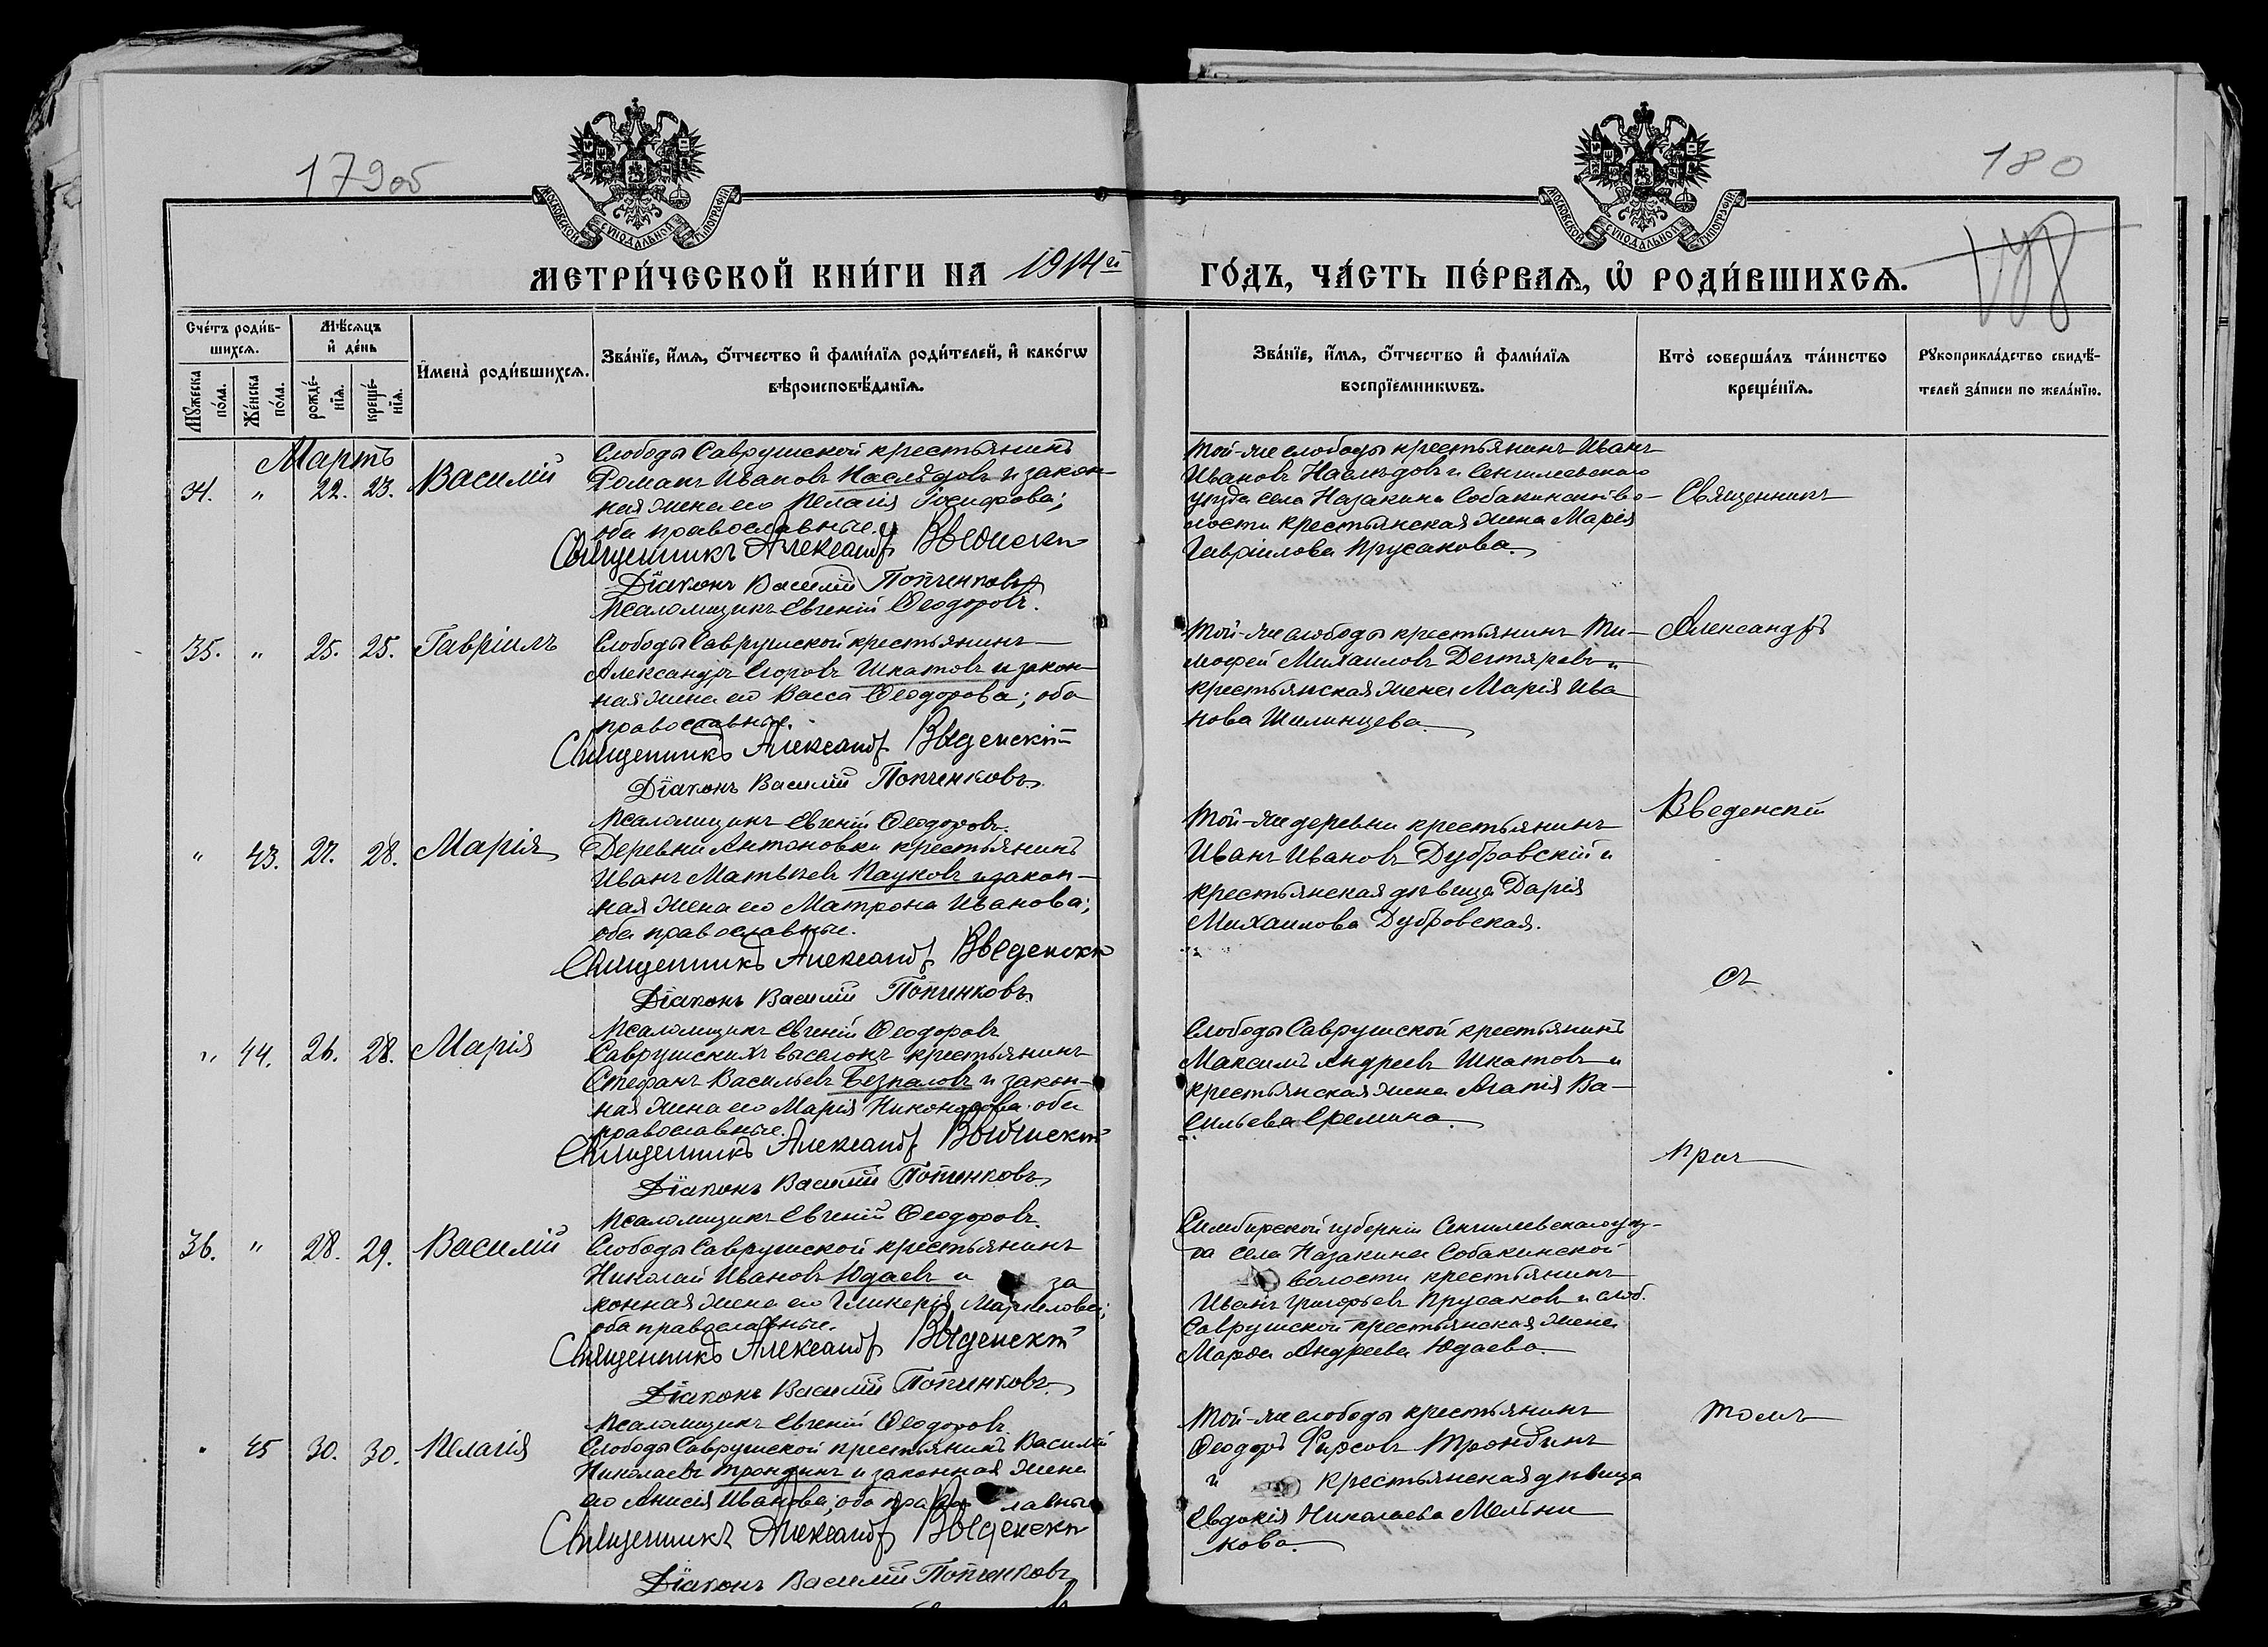 179об
180
МОСКОВСКОЙ СѴНОДАЛЬНОЙ ТИПОГРАФІИ
МОСКОВСКОЙ СѴНОДАЛЬНОЙ ТИПОГРАФІИ
МЕТРИ́ЧЕСКОЙ КНИ́ГИ НА 1914й
ГО́ДЪ, ЧА́СТЬ ПЕ́РВАѦ, Ѡ҆ РОДИ́ВШИХСѦ.
Сче́тъ роди́в-
шихсѧ.
Мѣ́сѧцъ
и҆ де́нь
Мꙋ́жеска по́ла.
Же́нска по́ла.
рожде́-
нїѧ.
креще́-
нїѧ.
И҆мена̀ роди́вшихсѧ.
Зва́нїе, и҆́мѧ, ѻ҆́тчество и҆ фами́лїѧ роди́телей, и҆ како́гѡ
вѣроисповѣ́данїѧ.
Зва́нїе, и҆́мѧ, ѻ҆́тчество и҆ фами́лїѧ
воспрїе́мникѡвъ.
Кто̀ соверша́лъ та́инство
креще́нїѧ.
Рꙋкоприкла́дство свидѣ́-
телей за́писи по жела́нїю.
Мартъ
34. " 22. 23. Василій
Слободы Саврушской крестьянинъ
Романъ Ивановъ Наслѣдовъ и закон-
ная жена его Пелагія Іосифова;
оба православные.
Священникъ Александръ Введенскій
Діаконъ Василій Попченковъ
Псаломщикъ Евгеній Ѳеодоровъ.
Той-же слободы крестьянинъ Иванъ
Ивановъ Наслѣдовъ и Сенгилевскаго
уѣзда села Назакина Собакинской во-
лости крестьянская жена Марія
Гавріилова Прусакова.
Священникъ
35. " 25. 25. Гавріилъ
Слободы Саврушской крестьянинъ
Александръ Егоровъ Шкатовъ и закон-
ная жена его Васса Ѳеодорова; оба
православные.
Священникъ Александръ Введенскій
Діаконъ Василій Попченковъ.
Псаломщикъ Евгеній Ѳеодоровъ.
Той-же слободы крестьянинъ Ти-
моѳей Михаиловъ Дегтяревъ и
крестьянская жена Марія Ива
нова Шилинцева.
Александръ
" 43. 27. 28. Марія
Деревни Антоновки крестьянинъ
Иванъ Матвѣевъ Пауковъ и закон-
ная жена его Матрона Иванова;
оба православные.
Священникъ Александръ Введенскій
Діаконъ Василій Попченковъ.
Псаломщикъ Евгеній Ѳеодоровъ
Той-же деревни крестьянинъ
Иванъ Ивановъ Дубровскій и
крестьянская дѣвица Дарія
Михаилова Дубровская.
Введенскій
съ
" 44. 26. 28. Марія
Саврушскихъ выселокъ крестьянинъ
Стефанъ Васильевъ Безпаловъ и закон-
ная жена его Марія Никонорова оба
православные.
Священникъ Александръ Введенскій
Діаконъ Василій Попченковъ.
Псаломщикъ Евгеній Ѳеодоровъ.
Слободы Саврушской крестьянинъ
Максимъ Андреевъ Шкатовъ и
крестьянская жена Агапія Ва-
сильева Еремина.
прич
36. " 28. 29. Василій
Слободы Саврушской крестьянинъ
Николай Ивановъ Юдаевъ и за
конная жена его Гликерія Маркелова;
оба православные.
Священникъ Александръ Введенскій
Діаконъ Василій Попченковъ.
Псаломщикъ Евгеній Ѳеодоровъ.
Симбирской губерніи Сенгилеевскаго уѣз-
да села Назакина Собакинской
волости крестьянинъ
Иванъ Григорьевъ Прусаковъ и слоб.
Саврушской крестьянская жена
Марѳа Андреева Юдаева.
" 45 30. 30. Пелагія
Слободы Саврушской крестьянинъ Василій
Николаевъ Трондинъ и законная жена
его Анисія Иванова; оба православные
Священникъ Александръ Введенскій
Діаконъ Василій Попченковъ
Той-же слободы крестьянинъ
Ѳеодоръ Фирсовъ Трондинъ
и крестьянская дѣвица
Евдокія Николаева Мельни
кова.
томъ